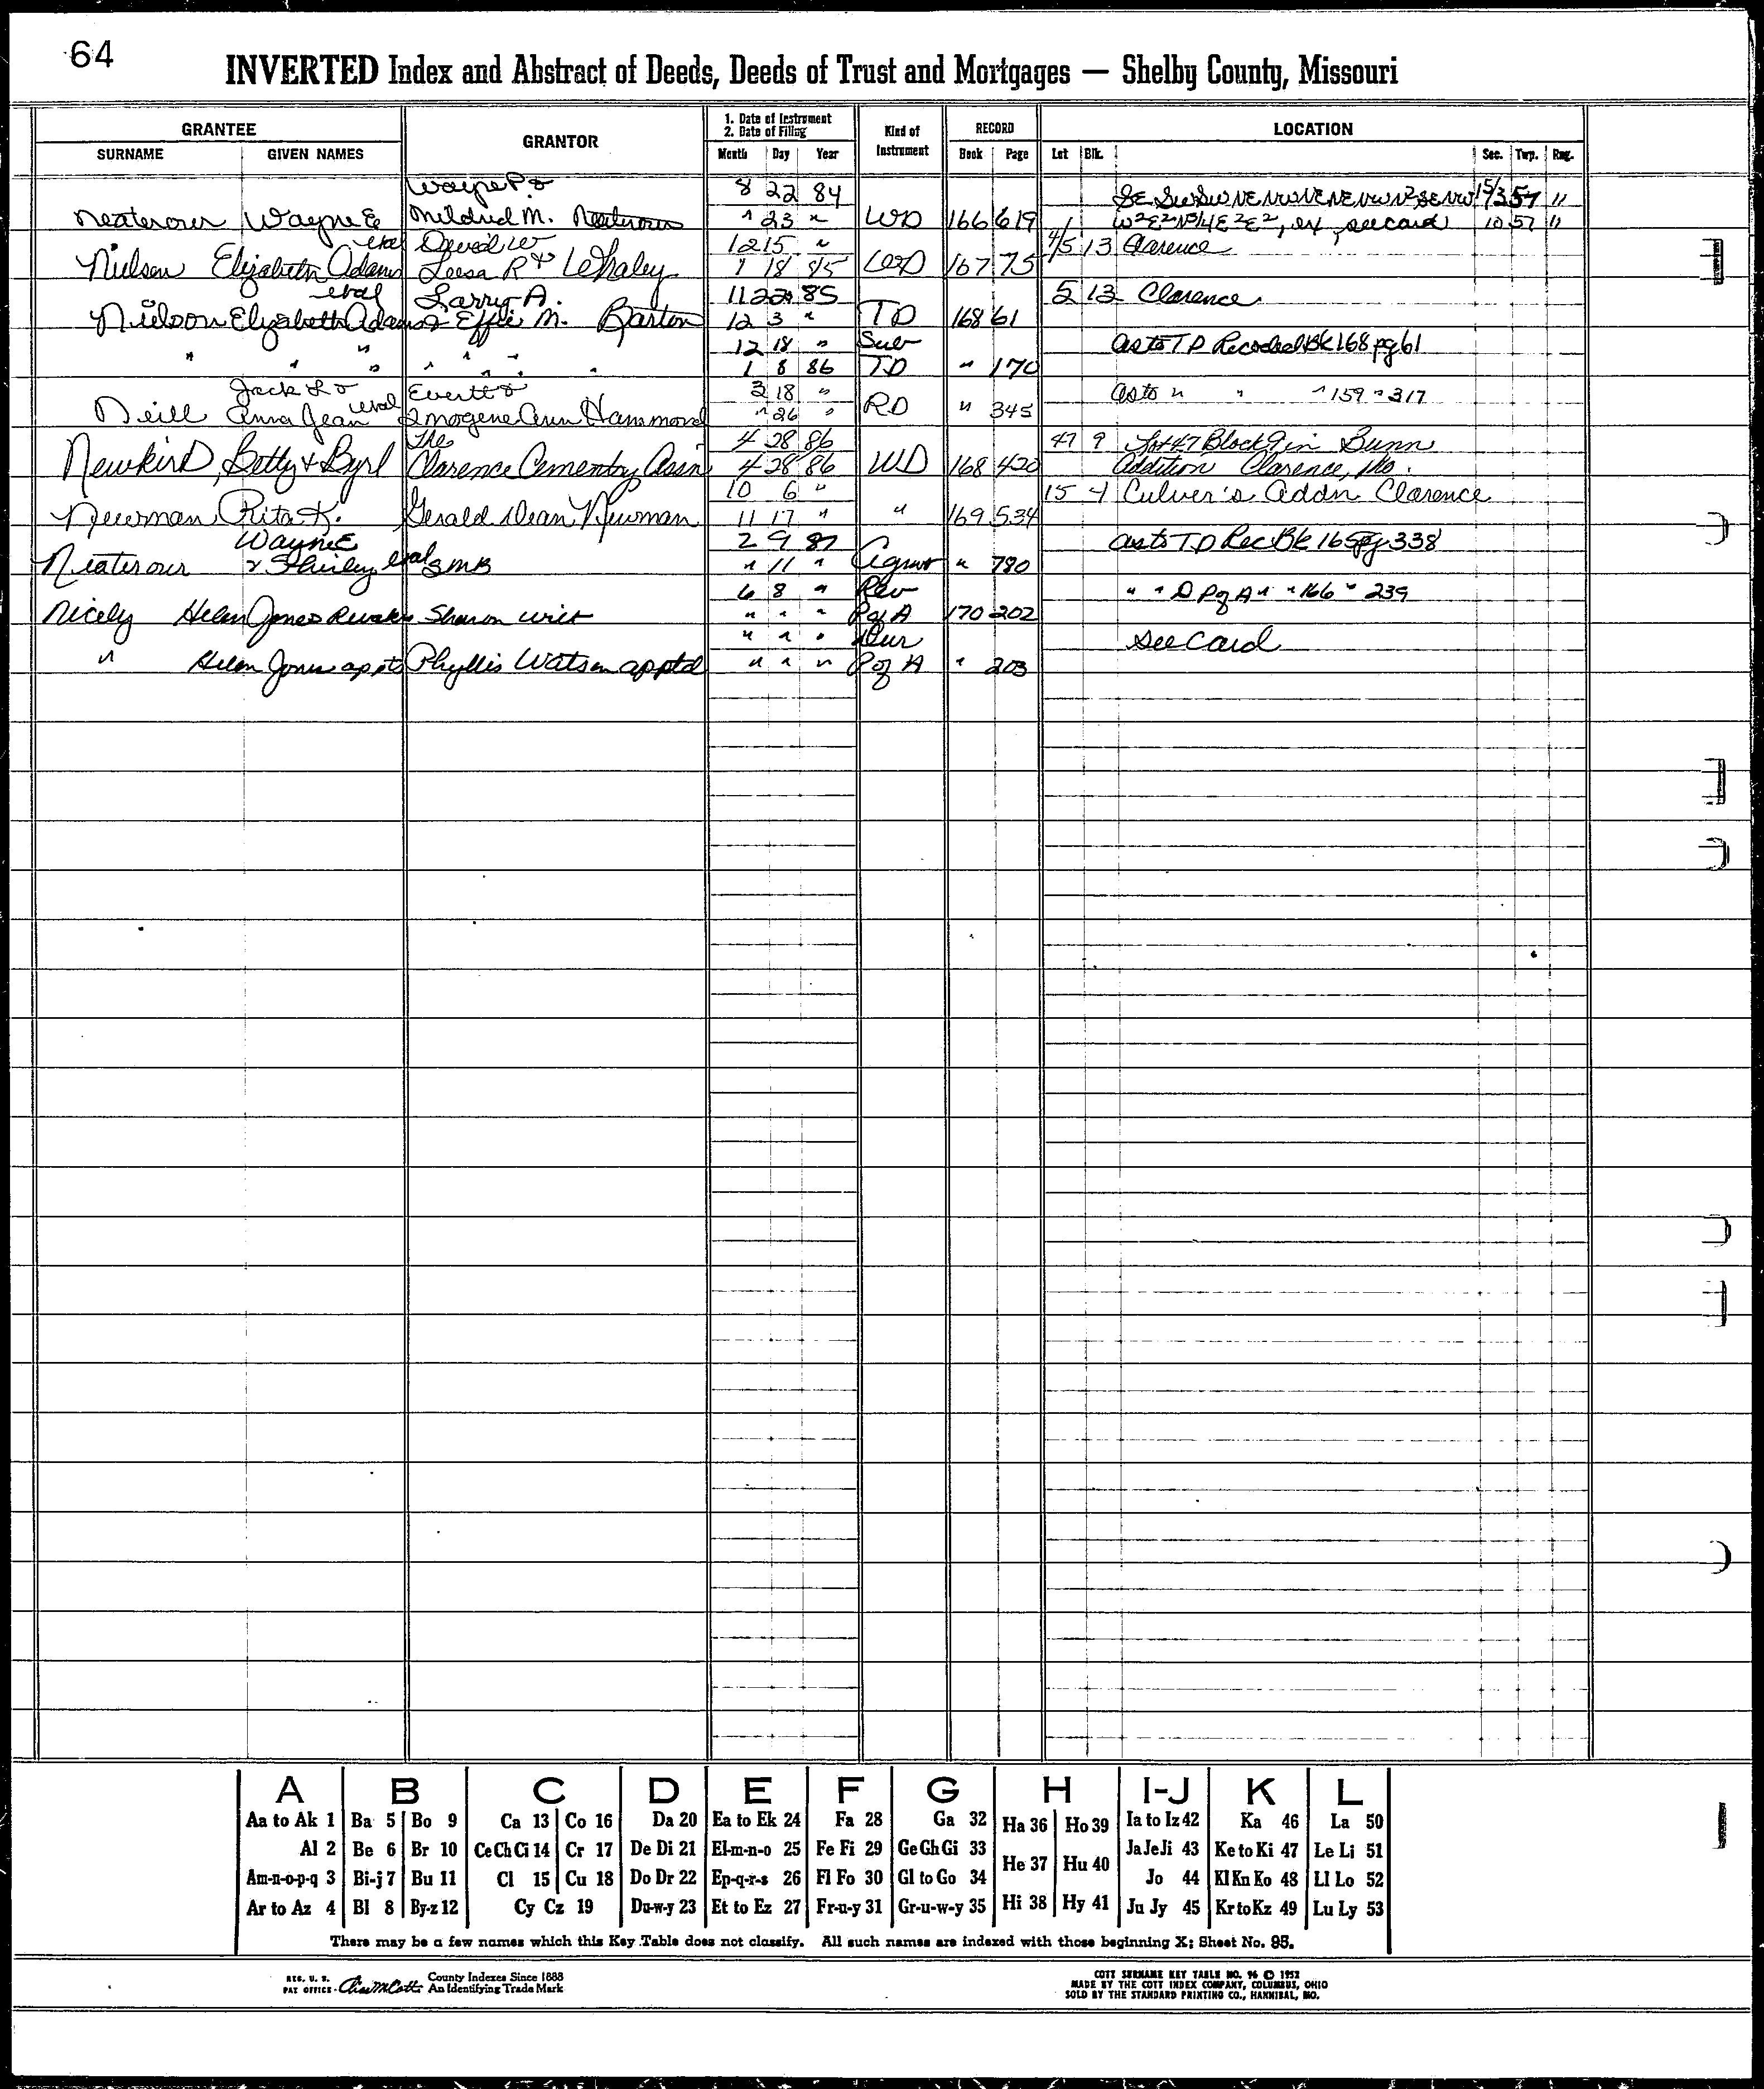 64
INVERTED Index and Abstract of Deeds, Deeds of Trust and Mortgages — Shelby County, Missouri
GRANTEE GRANTOR 1. Date of Instrument 2. Date of Filing Kind of Instrument RECORD LOCATION
SURNAME GIVEN NAMES Month Day Year Book Page Lot Blk. Sec. Twp. Rng.
Wayne P & 8 22 84 SE SW SW NE NW NE NE NW N2 SE NW 15/3 57 11
Neaterour Wayne E Mildred M. Neaterour " 23 " WD 166 619 W2E2 E2E2, ex, see card 10 57 11
etal David W 12 15 " 4/5 13 Clarence
Nielsen Elizabeth Adams Leesa R & Whaley 1 18 85 WD 167 75
etal Larry A. 11 22 85 5 13 Clarence
Nielson Elizabeth Adams & Effie M. Barton 12 3 " TD 168 61
12 18 " Sub as to TD Recorded Bk 168 pg 61
" " " " " " " 1 8 86 TD " 170
Jack L & Evertt & 3 18 " as to " " " 159 " 317
Neill Anna Jean etal Imogene Ann Hammond " 26 " RD " 345
The 4 28 86 47 9 Lot 47 Block 9 in Bunn
Newkird, Betty & Byrl Clarence Cementry Assn 4 28 86 WD 168 420 Addition Clarence, Mo.
10 6 " 15 4 Culver's Addn Clarence
Newman Rita K. Gerald Dean Newman 11 17 " " 169 534
Wayne E 2 9 87 as to TD Rec Bk 165 pg 338
Neaterour & Shirley etal SMB " 11 " Agmt " 780
6 8 " Rev " " D P of A " " 166 " 239
Nicely Helen Jones Revokes Sharon Wilt " " " P of A 170 202
" " " Dur see Card
" Helen Jones appts Phyllis Watson apptd " " " P of A " 203
A B C D E F G H I-J K L
Aa to Ak 1 Ba 5 Bo 9 Ca 13 Co 16 Da 20 Ea to Ek 24 Fa 28 Ga 32 Ha 36 Ho 39 Ia to Iz 42 Ka 46 La 50
Al 2 Be 6 Br 10 Ce Ch Ci 14 Cr 17 De Di 21 El-m-n-o 25 Fe Fi 29 Ge Gh Gi 33 He 37 Hu 40 Ja Je Ji 43 Ke to Ki 47 Le Li 51
Am-n-o-p-q 3 Bi-j 7 Bu 11 Cl 15 Cu 18 Do Dr 22 Ep-q-r-s 26 Fl Fo 30 Gl to Go 34 Jo 44 Kl Kn Ko 48 Ll Lo 52
Ar to Az 4 Bl 8 By-z 12 Cy Cz 19 Du-w-y 23 Et to Ez 27 Fr-u-y 31 Gr-u-w-y 35 Hi 38 Hy 41 Ju Jy 45 Kr to Kz 49 Lu Ly 53
There may be a few names which this Key Table does not classify. All such names are indexed with those beginning X; Sheet No. 95.
REG. U. S. PAT OFFICE County Indexes Since 1888 An Identifying Trade Mark
COTT SURNAME KEY TABLE NO. 96 © 1952
MADE BY THE COTT INDEX COMPANY, COLUMBUS, OHIO
SOLD BY THE STANDARD PRINTING CO., HANNIBAL, MO.